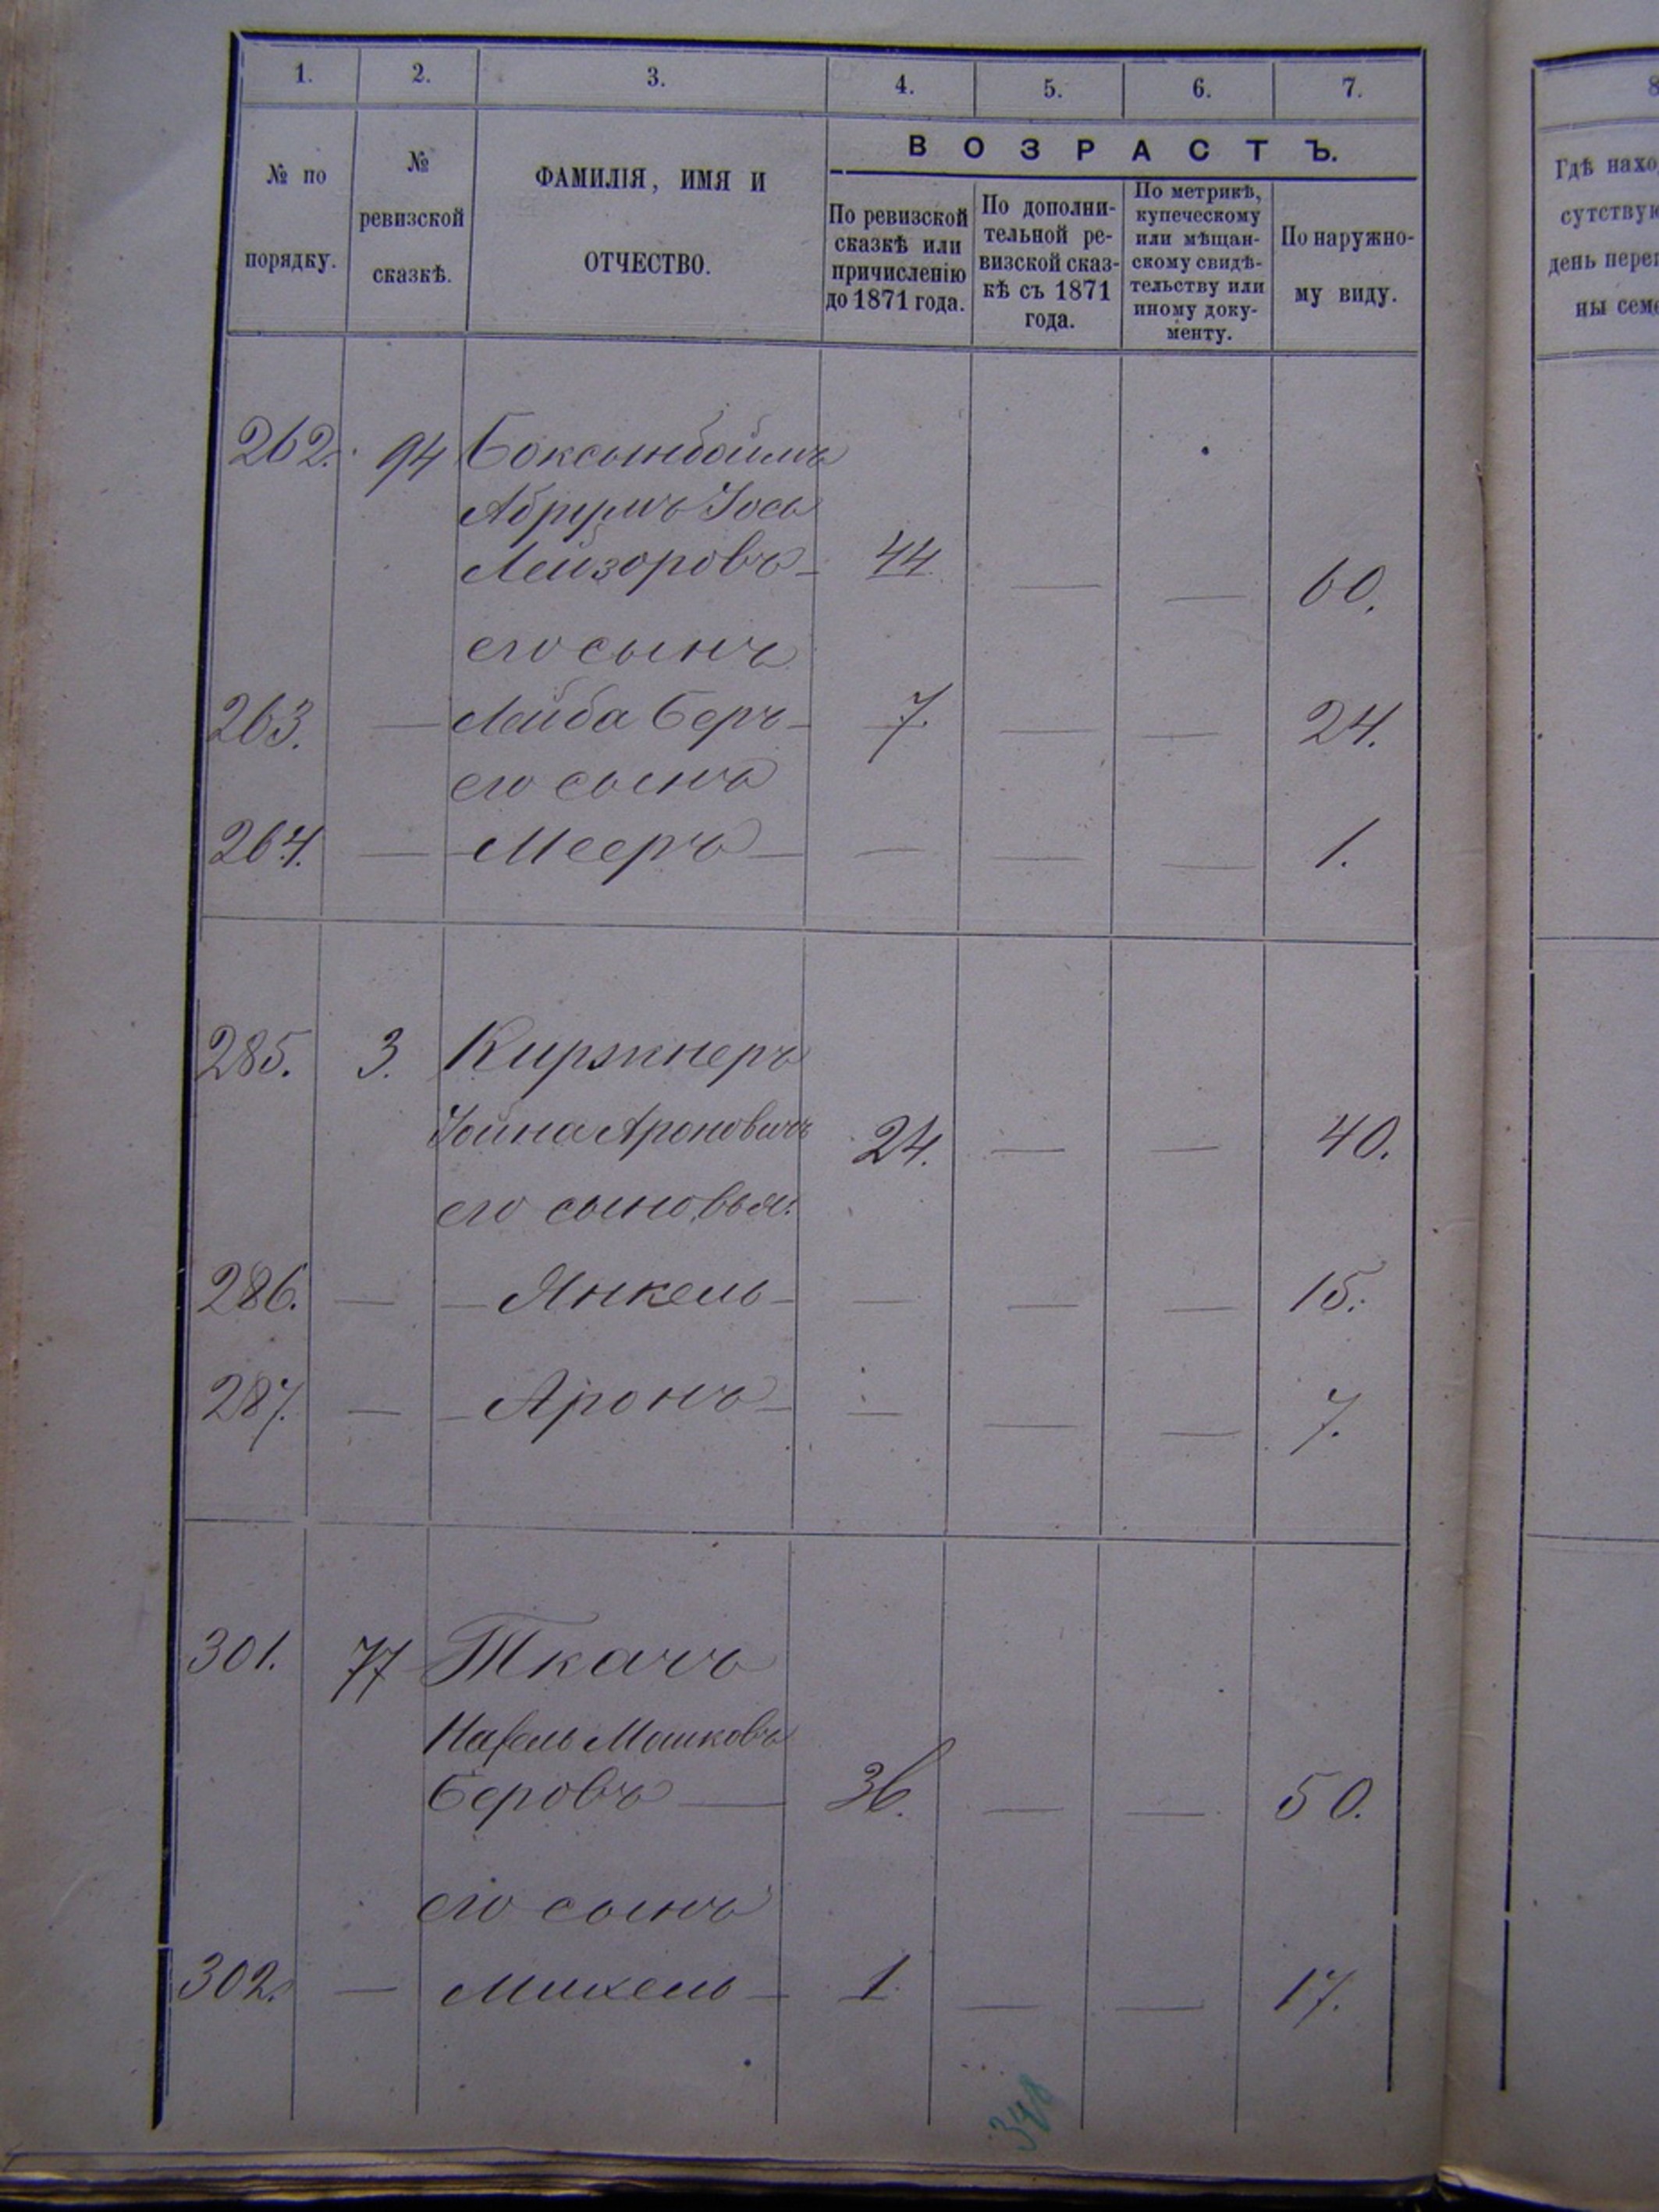 1. 2. 3. 4. 5. 6. 7.
№ по порядку.
№ ревизской сказкѣ.
ФАМИЛІЯ, ИМЯ И
ОТЧЕСТВО.
ВОЗРАСТЪ.
По ревизской
сказкѣ или
причисленію
до 1871 года.
По дополни-
тельной ре-
визской сказ-
кѣ съ 1871
года.
По метрикѣ,
купеческому
или мѣщан-
скому свидѣ-
тельству или
иному доку-
менту.
По наружно-
му виду.
262. 94 Боксынбоймъ
Абрумъ Іось
Лейзоровъ — 44 — — 60.
его сынъ
263. — Лейба Беръ — 7. — — 24.
его сынъ
264. — Мееръ — — — — 1.
285. 3. Киржнеръ
Іойна Ароновичъ 24. — — 40.
его сыновья:
286. — — Янкель — — — — 15.
287. — — Аронъ — — — — 7.
301. 77 Ткачъ
Мошковъ
Беровъ — 36. — — 50.
его сынъ
302. — Михель — 1. — — 17.
348
8
Гдѣ
день
ны